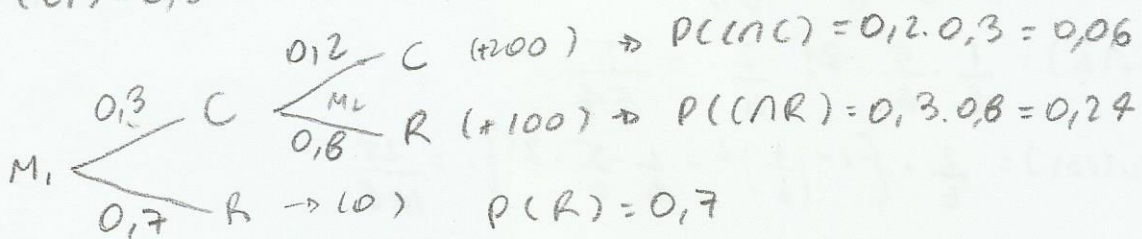 0,2 C (+200) → P(C∩C) = 0,2.0,3 = 0,06
0,3 C M2
0,8 R (+100) → P(C∩R) = 0,3.0,8 = 0,24
M1
0,7 R → (0) P(R) = 0,7